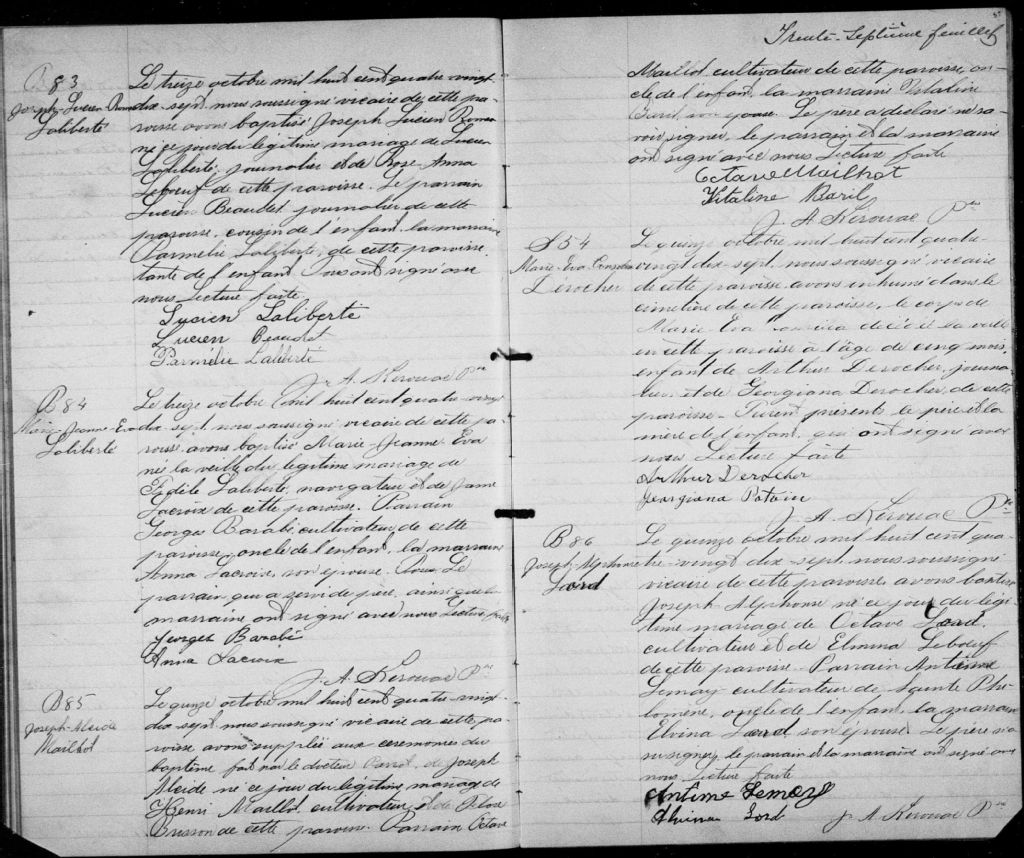 B 83
Joseph-Lucien Romeo
Laliberté
Le treize octobre mil huit cent quatre vingt
dix-sept nous soussigné vicaire de cette pa-
roisse avons baptisé Joseph Lucien Romeo
né ce jour du légitime mariage de Lucien
Laliberté, journalier et de Rose Anna
Leboeuf de cette paroisse. Le parrain
Lucien Beaudet journalier de cette
paroisse, cousin de l'enfant, la marraine
Parmelie Laliberté, de cette paroisse
tante de l'enfant. Tous ont signé avec
nous Lecture faite
Lucien Laliberté
Lucien Beaudet
Parmélie Laliberté
J. A. Kerouac Ptre
B 84
Marie-Jeanne-Eva
Laliberté
Le treize octobre mil huit cent quatre-vingt
dix sept nous soussigné vicaire de cette pa-
roisse avons baptisé Marie-Jeanne Eva
née la veille du légitime mariage de
Fidèle Laliberté, navigateur et de Jane
Lacroix de cette paroisse. Parrain
Georges Barabé, cultivateur de cette
paroisse, oncle de l'enfant, la marraine
Anna Lacroix, son épouse. Le
parrain qui a servi de père, ainsi que la
marraine ont signé avec nous Lecture faite
Georges Barabé
Anna Lacroix
J. A. Kerouac Ptre
B 85
Joseph-Alcide
Mailhot
Le quinze octobre mil huit cent quatre-vingt
dix sept nous soussigné vicaire de cette pa-
roisse avons supplée aux ceremonies du
baptême fait par le docteur de Joseph
Alcide né ce jour du légitime mariage de
Henri Maillot cultivateur, et de
Brisson de cette paroisse. Parrain Octave
Trente-Septième feuillet
Maillot cultivateur de cette paroisse, on-
cle de l'enfant, la marraine Vitaline
Baril, son épouse. Le père a déclaré ne sa-
voir signer, le parrain et la marraine
ont signé avec nous Lecture faite
Octave Mailhot
Vitaline Baril
J. A. Kerouac Ptre
S 54
Marie-Eva
Derocher
Le quinze octobre mil huit cent quatre-
vingt dix-sept, nous soussigné vicaire
de cette paroisse avons inhumé dans le
cimetière de cette paroisse, le corps de
Marie Eva décédée la veille
en cette paroisse à l'âge de cinq mois,
enfant de Arthur Derocher, journa-
lier, et de Georgiana Derocher, de cette
paroisse. Furent présents le père et la
mère de l'enfant, qui ont signé avec
nous Lecture faite
Arthur Derocher
Georgiana Potvin
J. A. Kerouac Ptre
B 86
Joseph Alphonse
Lord
Le quinze octobre mil huit cent qua-
tre-vingt dix-sept, nous soussigné
vicaire de cette paroisse, avons baptisé
Joseph-Alphonse né ce jour du légi-
time mariage de Octave Lord,
cultivateur et de Elmina Leboeuf
de cette paroisse. Parrain Antime
Lemay cultivateur de Sainte Phi-
lomène, oncle de l'enfant, la marraine
Lord son épouse. Le père n'a
su signer, le parrain et la marraine ont signé avec
nous, Lecture faite
Antime Lemay
Lord
J. A. Kerouac Ptre